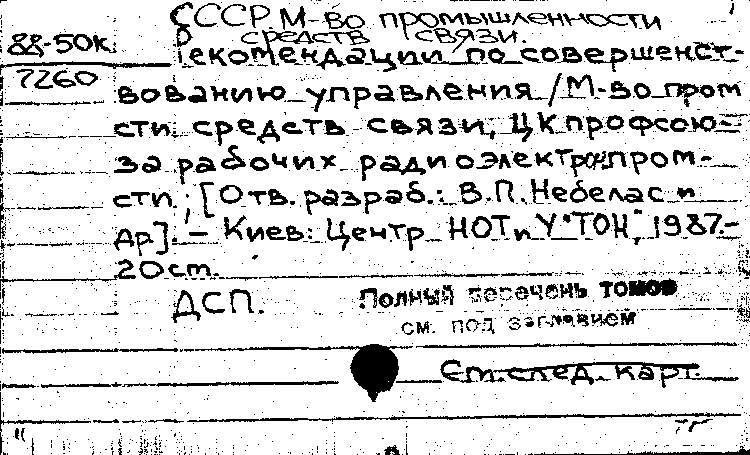 СССР М-во промышленности
средств связи.
88-50к.
Рекомендации по совершенст-
7260
вованию управления / М-во пром
сти средств связи, ЦК профсою-
за рабочих радиоэлектронпром-
сти ; [Отв. разраб.: В.П. Небелас и
др]. - Киев: Центр НОТ и У "ТОН", 1987.-
20 ст.
ДСП.
Полный перечень томов
см. под заглавием
См. след. карт.